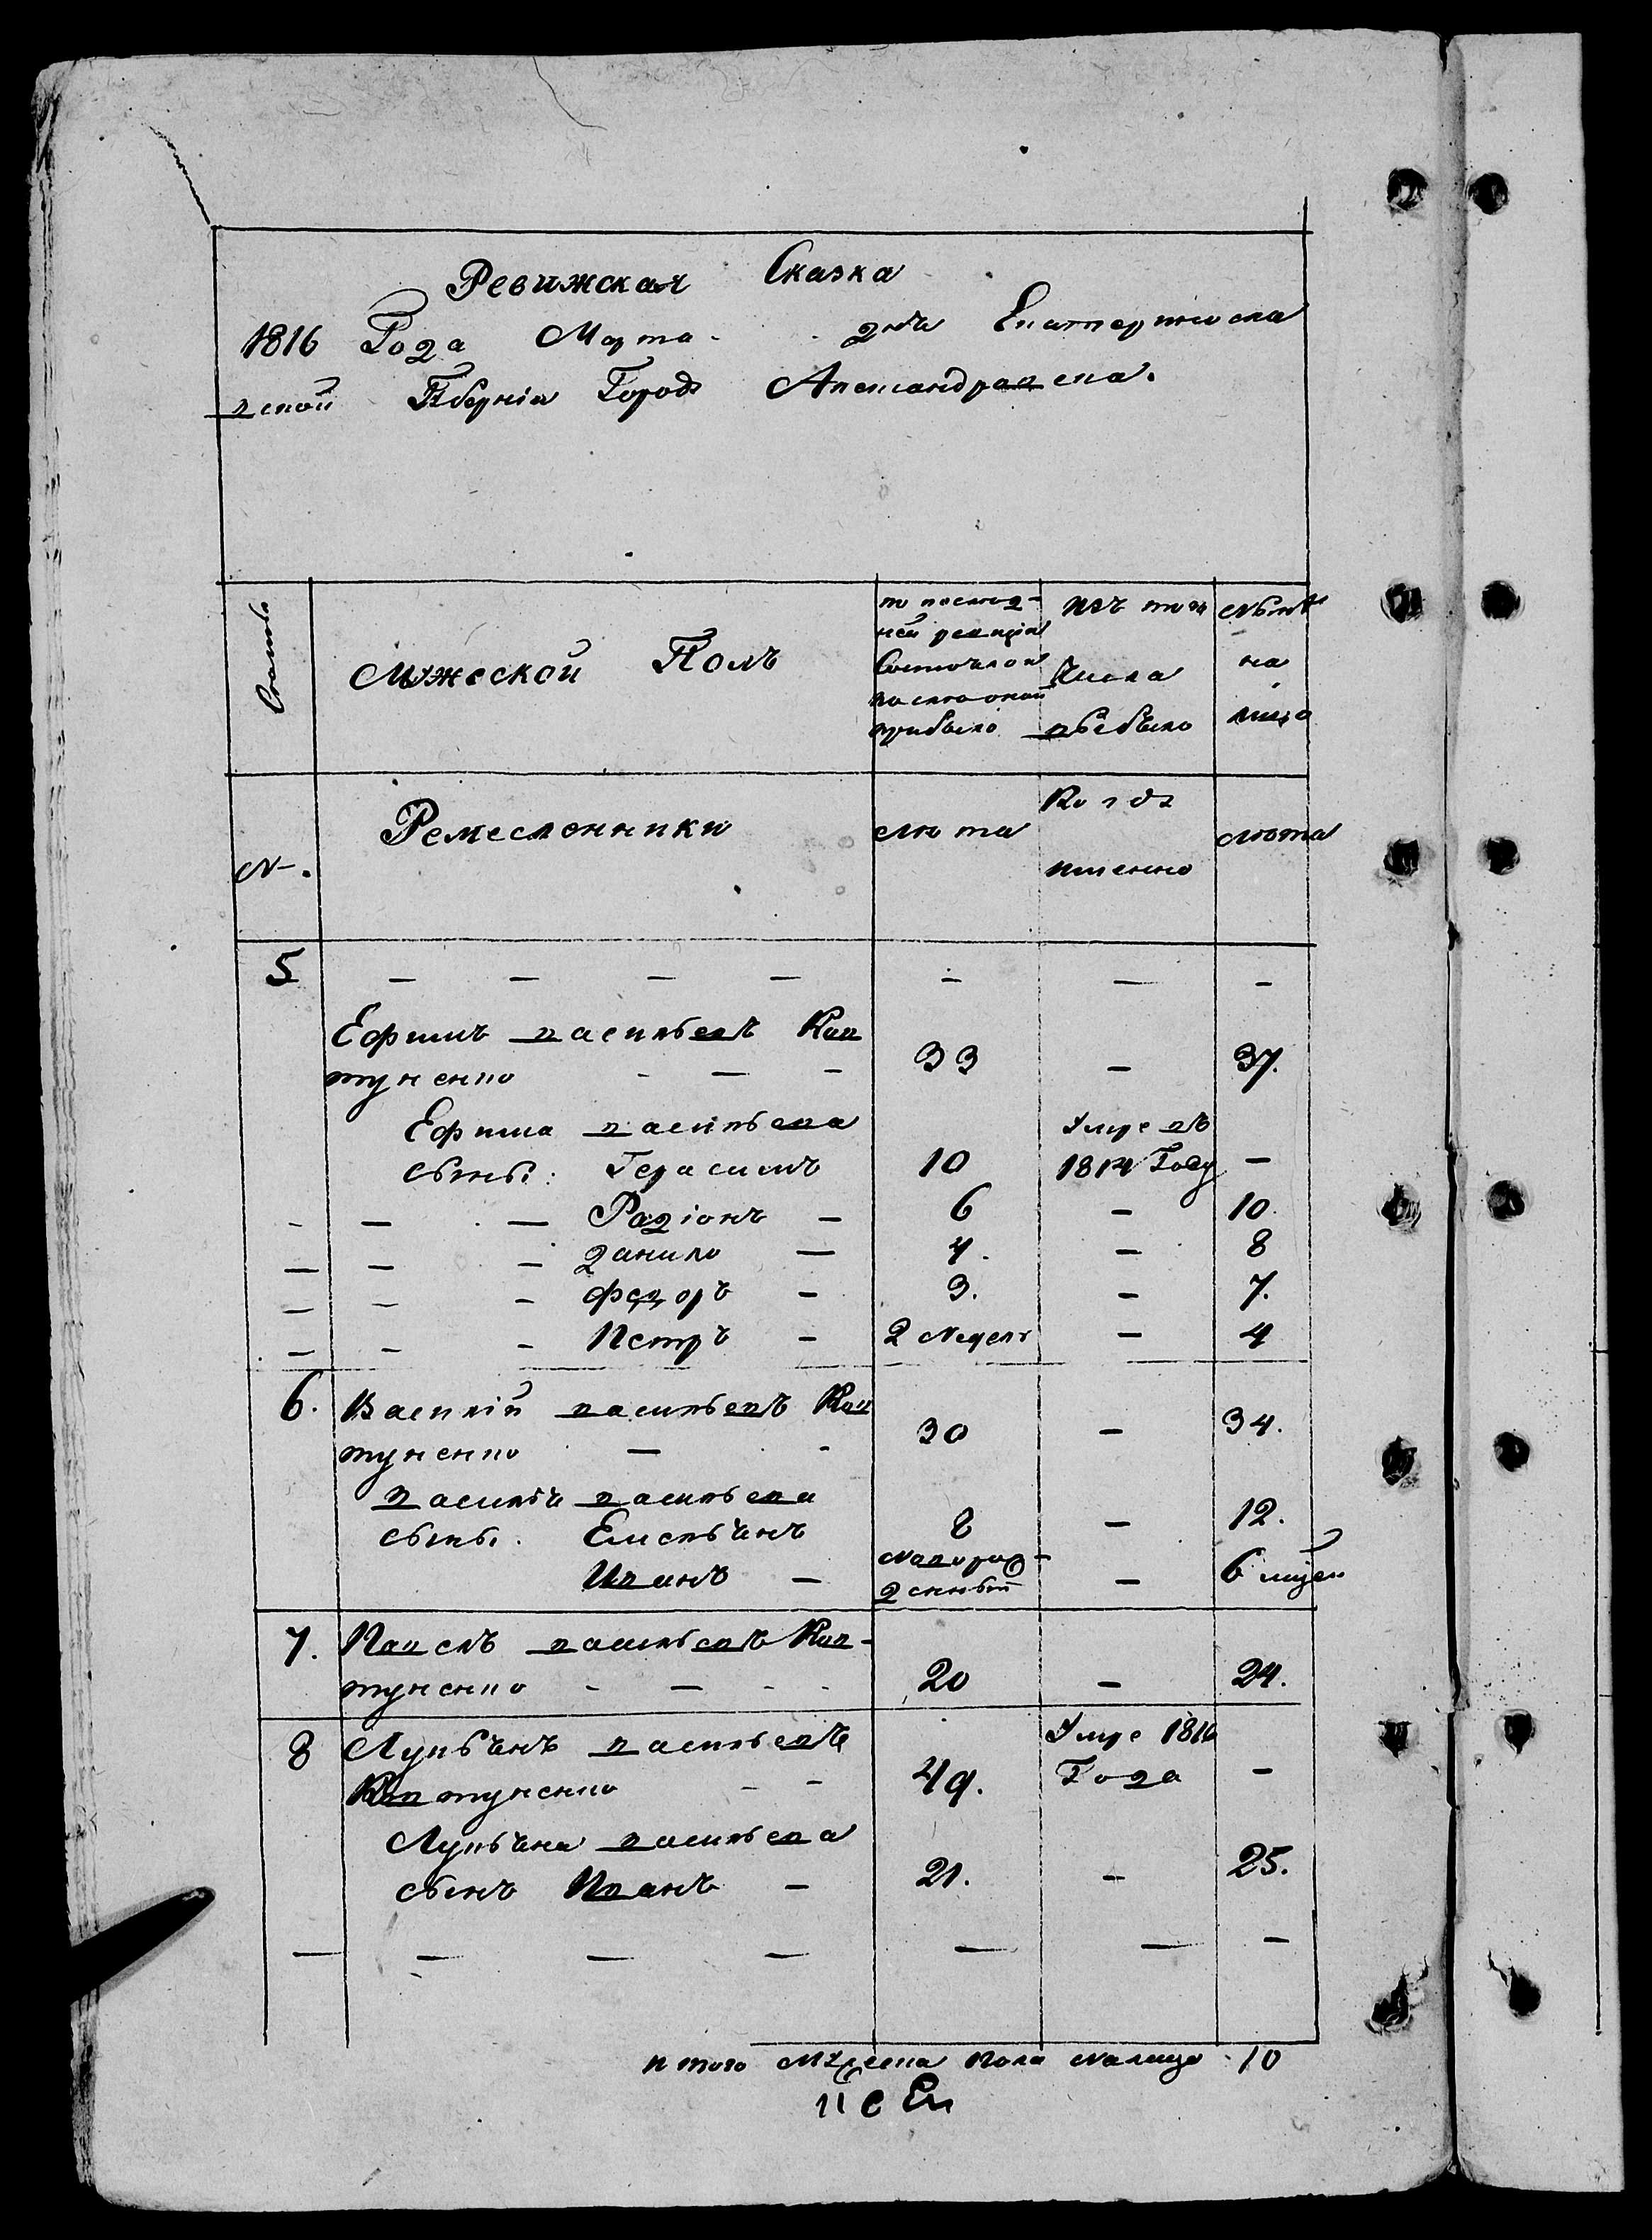 Ревижская Сказка
1816 Года Марта дня Екатериносла
вской Губерніи Городъ Александравска.
мужеской Полъ
по послед-
ней ревизіи
Состоялои
после оной
прибыло
изъ того
Числа
выбыло
на
лицо
№.
Ремесленники
лета
Когда
именно
лета
5
Ефимъ васильевъ Кав
туненко
33
37.
Ефима васильева
сыны: Герасимъ
10
Умре въ
1814 Году
Радіонъ
6
10.
данило
4.
8
федоръ
3.
7.
Петръ
2 Недель
4
6.
Василій васильевъ Кав
туненко
30
34.
василья васильева
сыны. Емельянъ
8
12.
Иванъ
Навораж-
денный
6 мцей
7.
Павелъ васильевъ Кав-
туненко
20
24.
8
Лукьянъ васильевъ
Кавтуненко
49.
Умре 1816
Года
Лукьяна васильева
сынъ Иванъ
21.
25.
итого Мужеска Пола Налицо 10